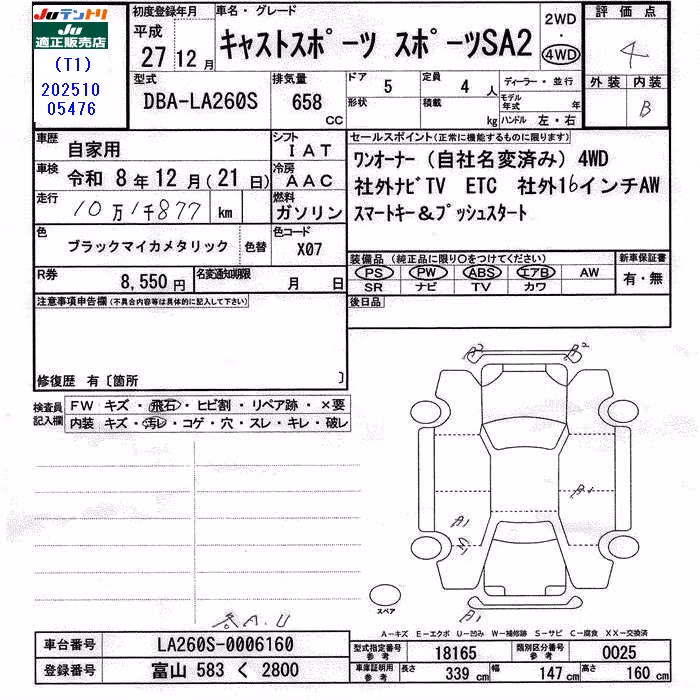 Juテントリ
Ju
適正販売店
(T1)
202510
05476
初度登録年月
平成
27 12月
車名・グレード
キャストスポーツ スポーツSA2
2WD
・
4WD
評価点
4
外装 内装
B
型式
DBA-LA260S
排気量
658 CC
ドア
5
形状
定員
4 人
積載
kg
ディーラー・並行
モデル年式 年
ハンドル 左・右
車歴
自家用
シフト
IAT
車検
令和 8年 12月(21日)
冷房
AAC
走行
10万1千877 km
燃料
ガソリン
色
ブラックマイカメタリック
色替
色コード
X07
R券
8,550 円
名変通知期限
月 日
セールスポイント(正常に機能するものに限ります)
ワンオーナー(自社名変済み) 4WD
社外ナビTV ETC 社外16インチAW
スマートキー&プッシュスタート
装備品(純正品に限り○をつけてください)
PS PW ABS エアB AW
SR ナビ TV カワ
新車保証書
有・無
後日品
注意事項申告欄(不具合内容等は具体的に記入して下さい)
修復歴 有〔箇所 〕
検査員
記入欄
FW キズ・飛石・ヒビ割・リペア跡・×要
内装 キズ・汚レ・コゲ・穴・スレ・キレ・破レ
A2
A2
A1
A1
A1
スペア
A…キズ E…エクボ U…凹み W…補修跡 S…サビ C…腐食 XX…交換済
各A.U
車台番号 LA260S-0006160
登録番号 富山 583 く 2800
型式指定番号
参考
18165
類別区分番号
参考
0025
車庫証明用
参考
長さ 339 cm 幅 147 cm 高さ 160 cm